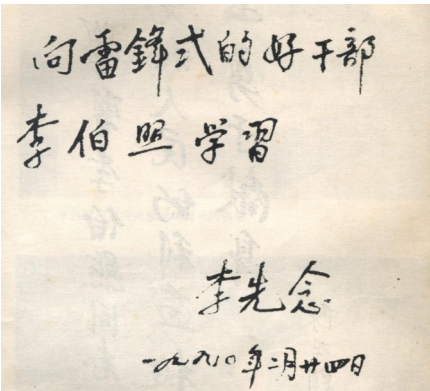 向雷鋒式的好干部
李伯照学習
李先念
一九九〇年二月廿四日